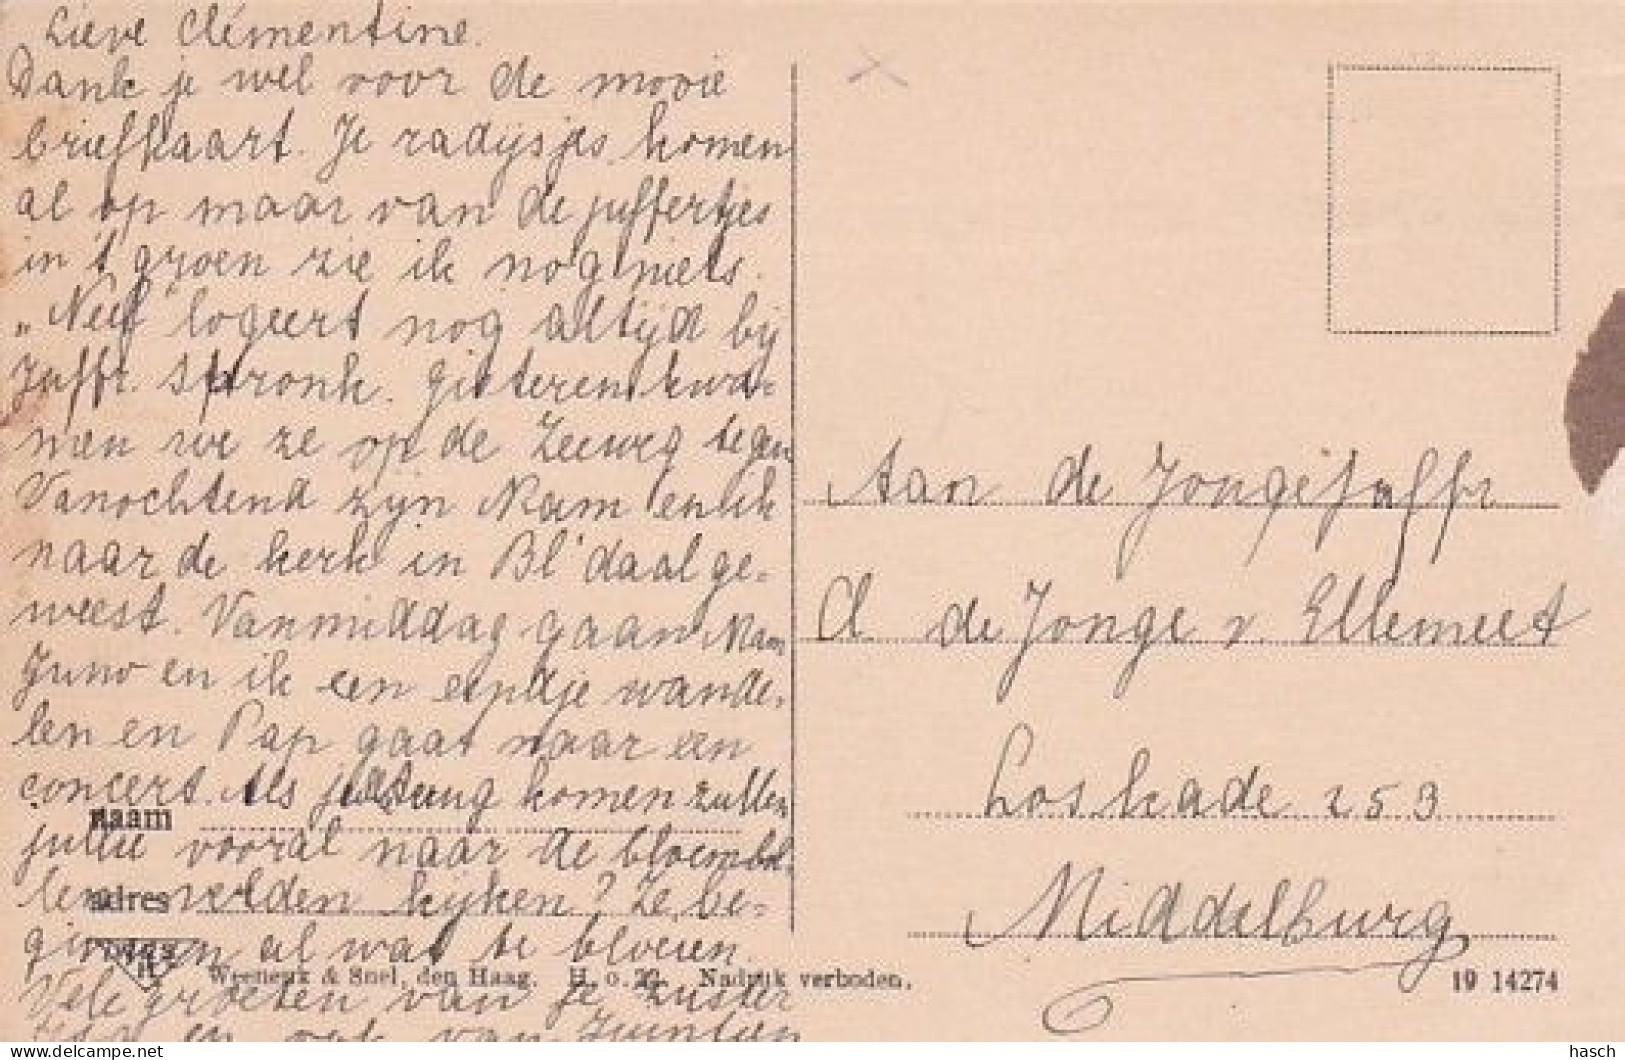 Lieve Clémentine.
Dank je wel voor de mooie
briefkaart. Je radijsjes komen
al op maar van de juffertjes
in 't groen zie ik nog niets.
„Neef" logeert nog altijd bij
Juffr. Stronk. Gisteren kwa-
men we ze op de Zeeweg tegen
Vanochtend zijn Mam en ik
naar de kerk in Bl'daal ge-
weest. Vanmiddag gaan Mam
Juno en ik een eindje wande-
len en Pap gaat naar een
concert. Als je terug komen zullen
jullie vooral naar de bloembol-
len velden kijken? Ze be-
ginnen al wat te bloeien.
Vele groeten van je zuster
en ook van
naam
adres
Weenenk & Snel, den Haag. H. o. 22. Nadruk verboden.
Aan de Jongejuffr
Cl de Jonge v. Ellemeet
Loskade 253
Middelburg
19 14274
hasch